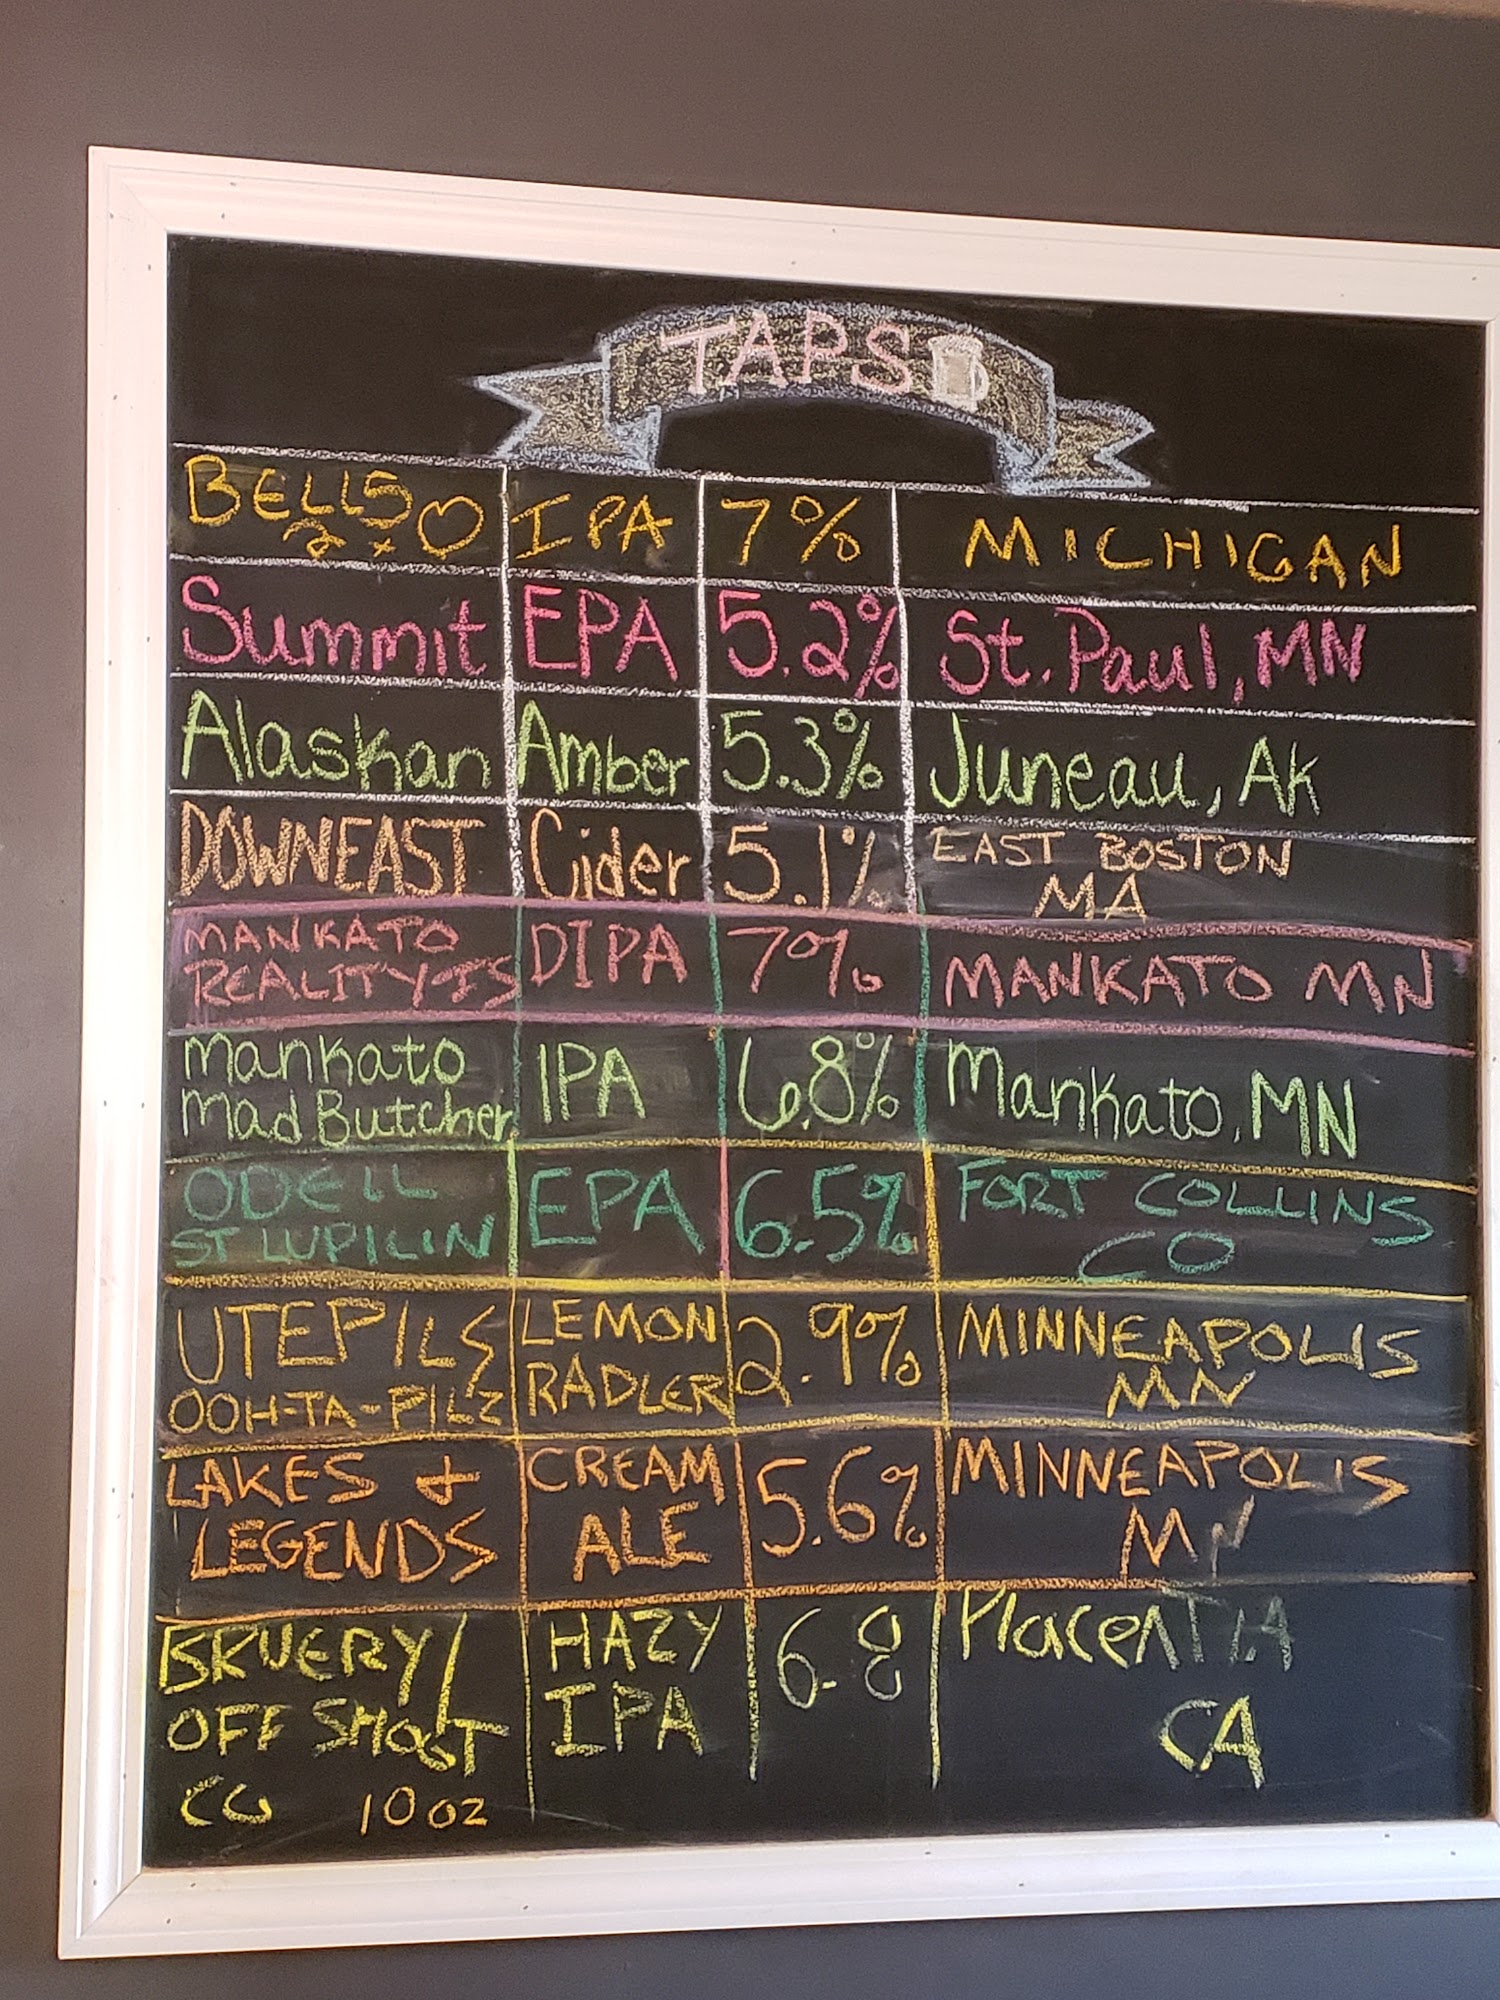 TAPS
BELLS 2x♡ IPA 7% MICHIGAN
Summit EPA 5.2% St. Paul, MN
Alaskan Amber 5.3% Juneau, AK
DOWNEAST Cider 5.1% EAST BOSTON
MA
MANKATO
REALITY IS DIPA 7% MANKATO MN
Mankato
Mad Butcher IPA 6.8% Mankato, MN
ODELL
ST LUPILIN EPA 6.5% FORT COLLINS
CO
UTEPILS
OOH-TA-PILZ LEMON
RADLER 2.9% MINNEAPOLIS
MN
LAKES &
LEGENDS CREAM
ALE 5.6% MINNEAPOLIS
MN
BRUERY/
OFF SHOOT
CG 10oz HAZY
IPA 6.8 PlacenTIA
CA